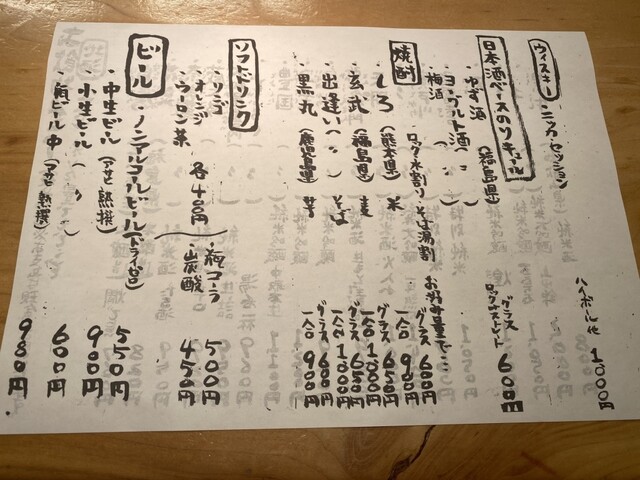 ウィスキー
・ニッカ・セッション
ハイボール他 1000円
日本酒ベースのリキュール
・ゆず酒 (福島県)
・ヨーグルト酒( 〃 )
・梅酒
グラス
ロック・ストレート 600円
焼酎
ロック・水割り・そば湯割
お好み量でここ
・しろ (熊本県) 米 グラス 600円
一合 900円
・玄武 (福島県) 麦 グラス 650円
一合 1000円
・出逢い( 〃 ) そば グラス 650円
一合 1000円
・黒丸 (鹿児島県) 芋 グラス 600円
一合 900円
ソフトドリンク
・リンゴ
・オレンジ
・ウーロン茶 各400円
・瓶コーラ 500円
・炭酸 450円
ビール
・ノンアルコールビール(ドライゼロ) 550円
・中生ビール (アサヒ 熟撰) 900円
・小生ビール ( 〃 ) 600円
・瓶ビール 中 (アサヒ 熟撰) 980円